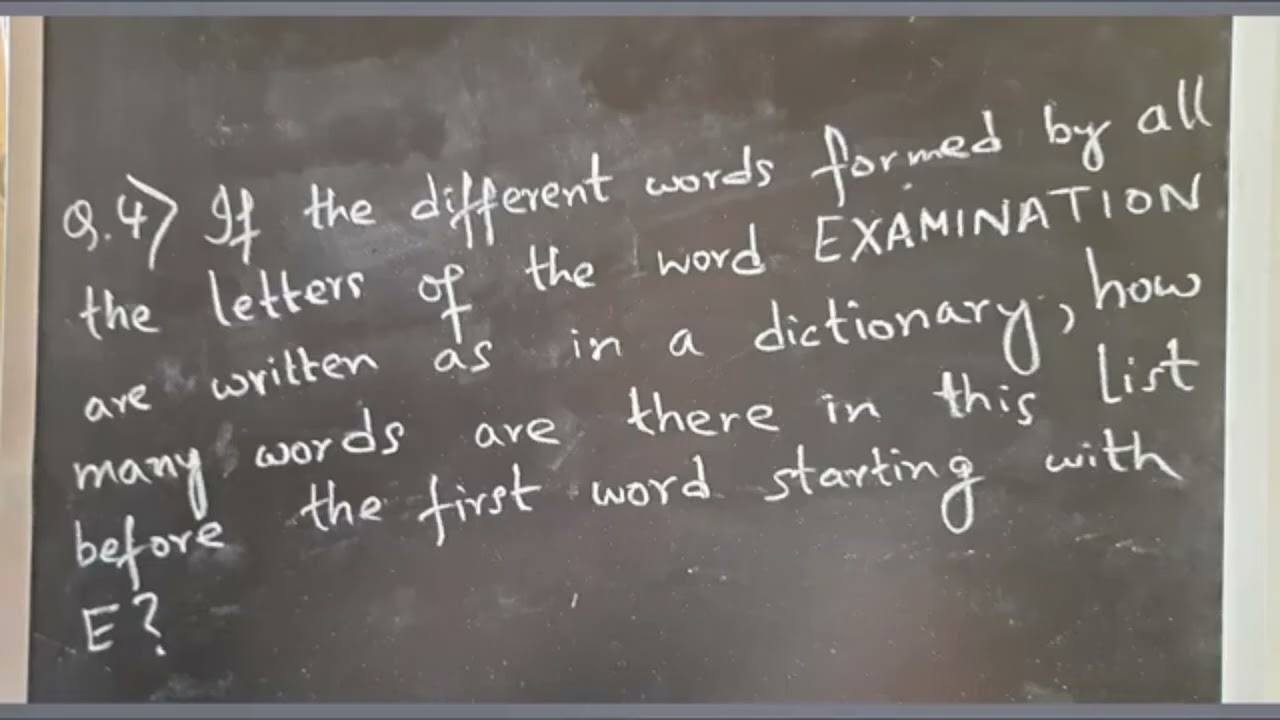 Q.4> If the different words formed by all
the letters of the word EXAMINATION
are written as in a dictionary, how
many words are there in this list
before the first word starting with
E?